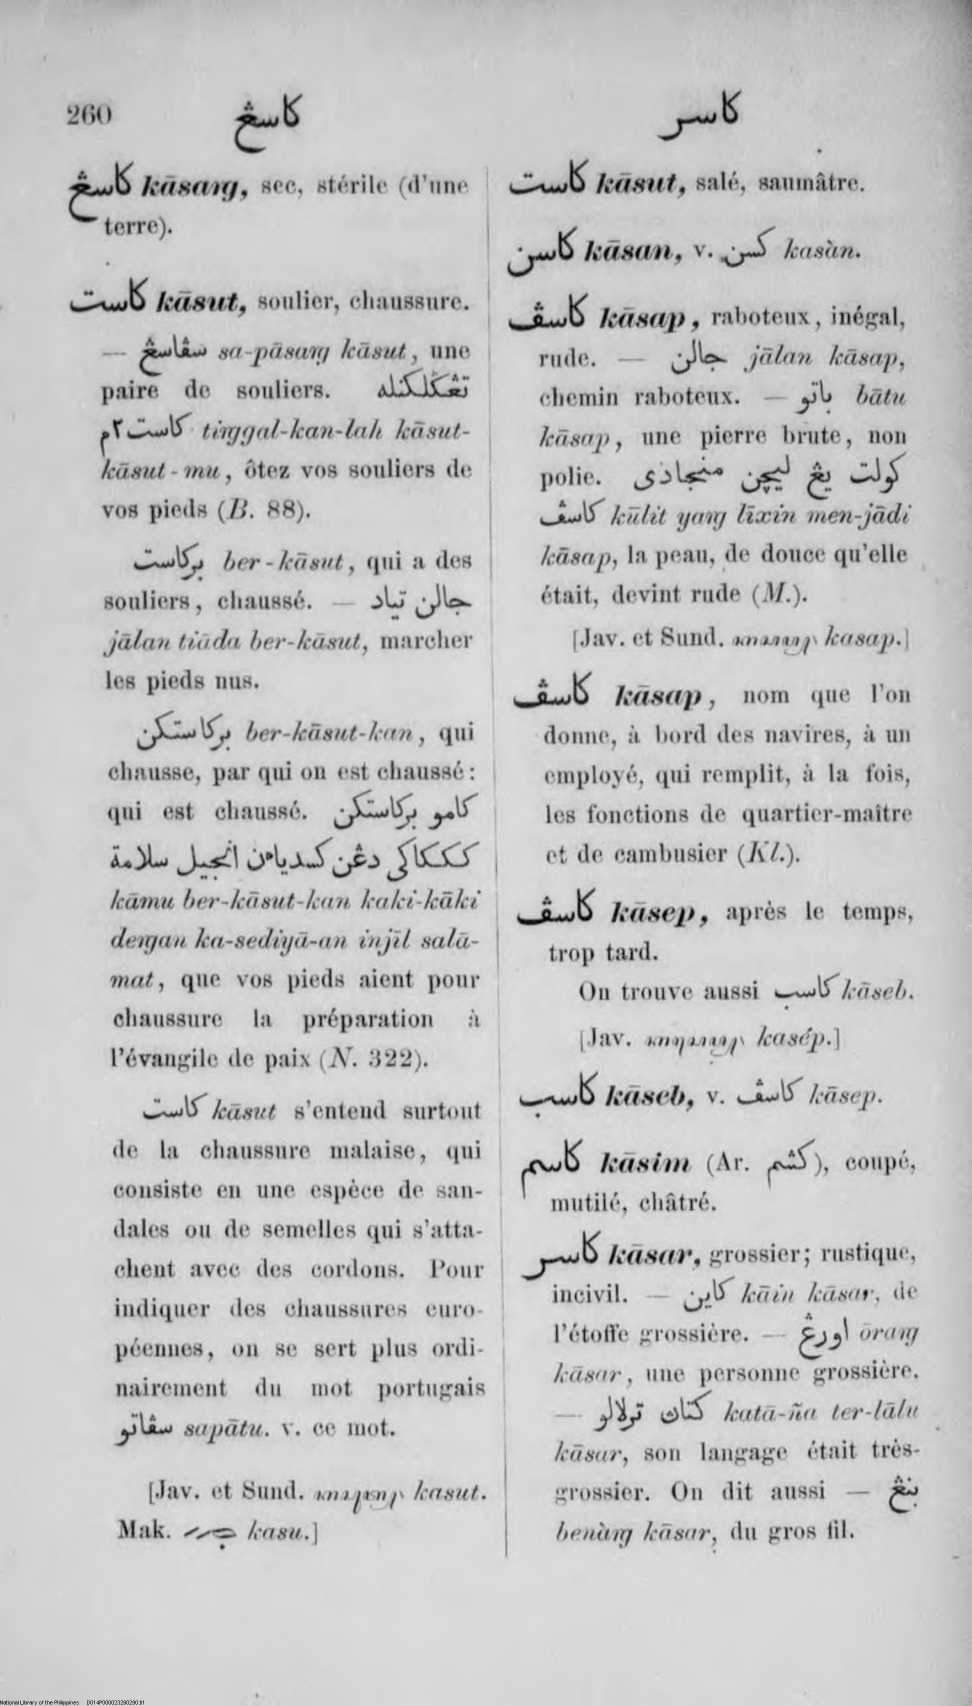 260 كاسڠ كاسر
كاسڠ kāsaṃg, sec, stérile (d'une
terre).
كاست kāsut, soulier, chaussure.
— سڤاسڠ sa-pāsaṃg kāsut, une
paire de souliers. تڠڬلكنله
كاست٢م tiṃggal-kan-lah kāsut-
kāsut-mu, ôtez vos souliers de
vos pieds (B. 88).
بركاست ber-kāsut, qui a des
souliers, chaussé. — جالن تياد
jālan tiāda ber-kāsut, marcher
les pieds nus.
بركاستكن ber-kāsut-kan, qui
chausse, par qui on est chaussé:
qui est chaussé. كامو بركاستكن
دڠن كسدياءن انجيل سلامة
kāmu ber-kāsut-kan kaki-kāki
deṃgan ka-sediyā-an injīl salā-
mat, que vos pieds aient pour
chaussure la préparation à
l'évangile de paix (N. 322).
كاست kāsut s'entend surtout
de la chaussure malaise, qui
consiste en une espèce de san-
dales ou de semelles qui s'atta-
chent avec des cordons. Pour
indiquer des chaussures euro-
péennes, on se sert plus ordi-
nairement du mot portugais
سڤاتو sapātu. v. ce mot.
[Jav. et Sund. kasut.
Mak. kasu.]
كاست kāsut, salé, saumâtre.
كاسن kāsan, v. كسن kasàn.
كاسڤ kāsap, raboteux, inégal,
rude. — جالن jālan kāsap,
chemin raboteux. — باتو bātu
kāsap, une pierre brute, non
polie. كولت يڠ ليچن منجادى
كاسڤ kūlit yaṃg līxin men-jādi
kāsap, la peau, de douce qu'elle
était, devint rude (M.).
[Jav. et Sund. kasap.]
كاسڤ kāsap, nom que l'on
donne, à bord des navires, à un
employé, qui remplit, à la fois,
les fonctions de quartier-maître
et de cambusier (Kl.).
كاسڤ kāsep, après le temps,
trop tard.
On trouve aussi كاسب kāseb.
[Jav. kasép.]
كاسب kāseb, v. كاسڤ kāsep.
كاسم kāsim (Ar. كشم), coupé,
mutilé, châtré.
كاسر kāsar, grossier; rustique,
incivil. — كاين kāin kāsar, de
l'étoffe grossière. — اورڠ ōraṃg
kāsar, une personne grossière.
— كتاڽ ترلالو katā-ña ter-lālu
kāsar, son langage était très-
grossier. On dit aussi — بنڠ
benàṃg kāsar, du gros fil.
National Library of the Philippines